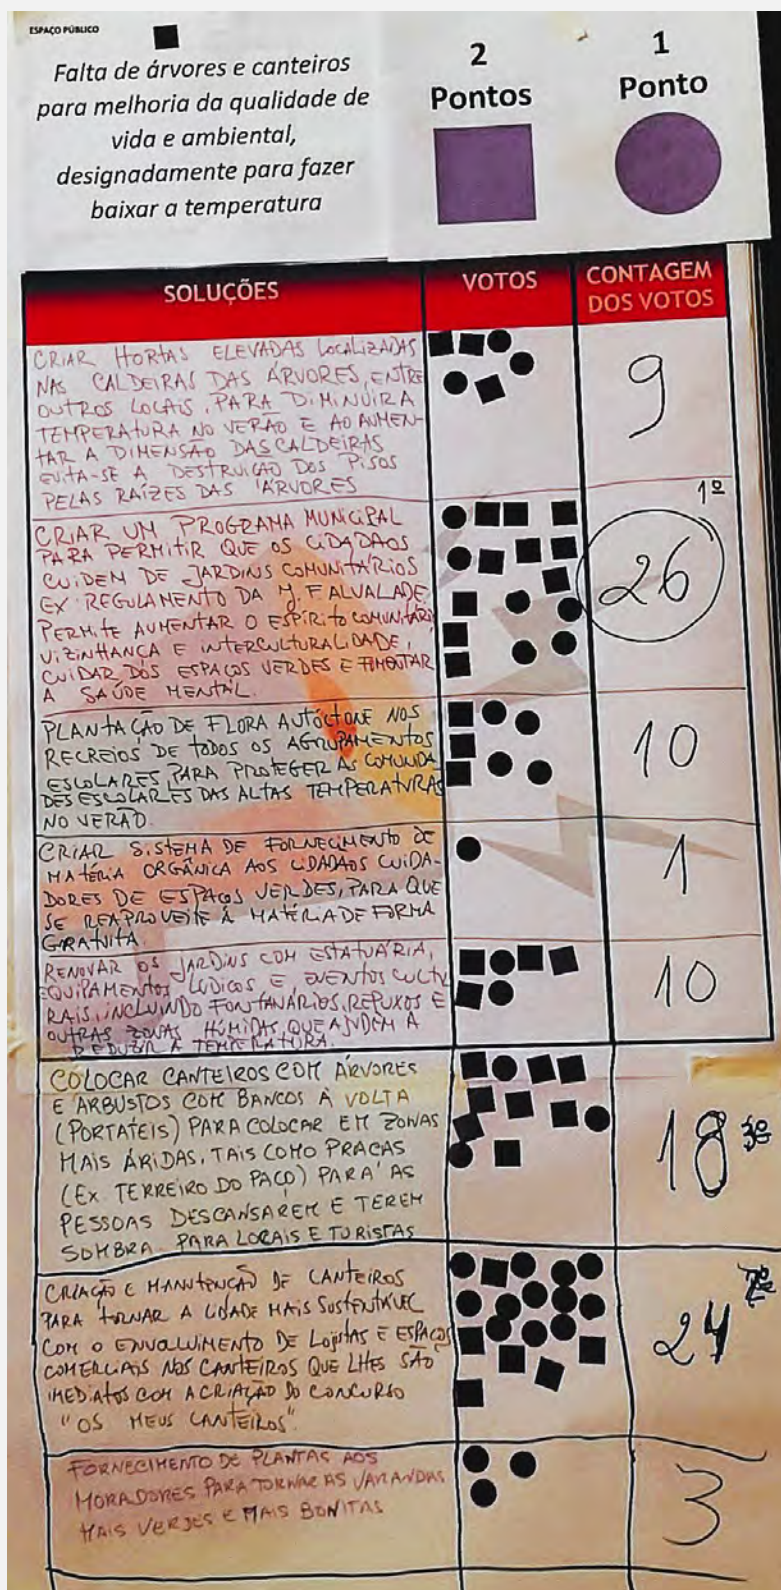 ESPAÇO PÚBLICO
Falta de árvores e canteiros
para melhoria da qualidade de
vida e ambiental,
designadamente para fazer
baixar a temperatura
2
Pontos
1
Ponto
SOLUÇÕES
VOTOS
CONTAGEM
DOS VOTOS
CRIAR HORTAS ELEVADAS LOCALIZADAS
NAS CALDEIRAS DAS ÁRVORES, ENTRE
OUTROS LOCAIS, PARA DIMINUIR A
TEMPERATURA NO VERÃO E AO AUMEN-
TAR A DIMENSÃO DAS CALDEIRAS
EVITA-SE A DESTRUIÇÃO DOS PISOS
PELAS RAÍZES DAS ÁRVORES
9
CRIAR UM PROGRAMA MUNICIPAL
PARA PERMITIR QUE OS CIDADÃOS
CUIDEM DE JARDINS COMUNITÁRIOS
EX REGULAMENTO DA J. F ALVALADE,
PERMITE AUMENTAR O ESPÍRITO COMUNITÁRIO
VIZINHANÇA E INTERCULTURALIDADE,
CUIDAR DOS ESPAÇOS VERDES E FOMENTAR
A SAÚDE MENTAL.
1º
26
PLANTAÇÃO DE FLORA AUTÓCTONE NOS
RECREIOS DE TODOS OS AGRUPAMENTOS
ESCOLARES, PARA PROTEGER AS COMUNIDA
DES ESCOLARES DAS ALTAS TEMPERATURAS
NO VERÃO.
10
CRIAR SISTEMA DE FORNECIMENTO DE
MATÉRIA ORGÂNICA AOS CIDADÃOS CUIDA-
DORES DE ESPAÇOS VERDES, PARA QUE
SE REAPROVEITE A MATÉRIA DE FORMA
GRATUITA.
1
RENOVAR OS JARDINS COM ESTATUÁRIA,
EQUIPAMENTOS LÚDICOS E EVENTOS CULTU
RAIS, INCLUINDO FONTANÁRIOS, REPUXOS E
OUTRAS ZONAS HÚMIDAS, QUE AJUDEM A
REDUZIR A TEMPERATURA.
10
COLOCAR CANTEIROS COM ÁRVORES
E ARBUSTOS COM BANCOS À VOLTA
(PORTATEIS) PARA COLOCAR EM ZONAS
MAIS ÁRIDAS, TAIS COMO PRACAS
(EX TERREIRO DO PAÇO) PARA AS
PESSOAS DESCANSAREM E TEREM
SOMBRA PARA LOCAIS E TURISTAS
18 3º
CRIAÇÃO E MANUTENÇÃO DE CANTEIROS
PARA TORNAR A CIDADE MAIS SUSTENTÁVEL
COM O ENVOLVIMENTO DE LOJISTAS E ESPAÇOS
COMERCIAIS NOS CANTEIROS QUE LHES SÃO
IMEDIATOS COM A CRIAÇÃO DO CONCURSO
"OS MEUS CANTEIROS".
2º
24
FORNECIMENTO DE PLANTAS AOS
MORADORES PARA TORNAR AS VARANDAS
MAIS VERDES E MAIS BONITAS
3